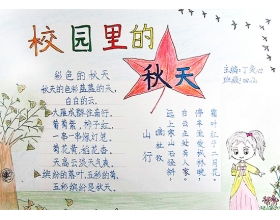 校园里的
秋天
主编：丁
班级：四
彩色的秋天
秋天的色彩是蓝的天，
白白的云，
大雁成群往南行。
葡萄紫，柿子红，
一串一串像灯笼。
菊花黄，稻花香，
天高云淡天气爽，
缤纷的落叶，五彩的菊，
五彩缤纷是秋天。
山行
杜牧
远上寒山石径斜，
白云生处有人家。
停车坐爱枫林晚，
霜叶红于二月花。